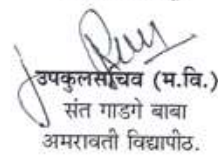 उपकुलसचिव (म.वि.)
संत गाडगे बाबा
अमरावती विद्यापीठ.